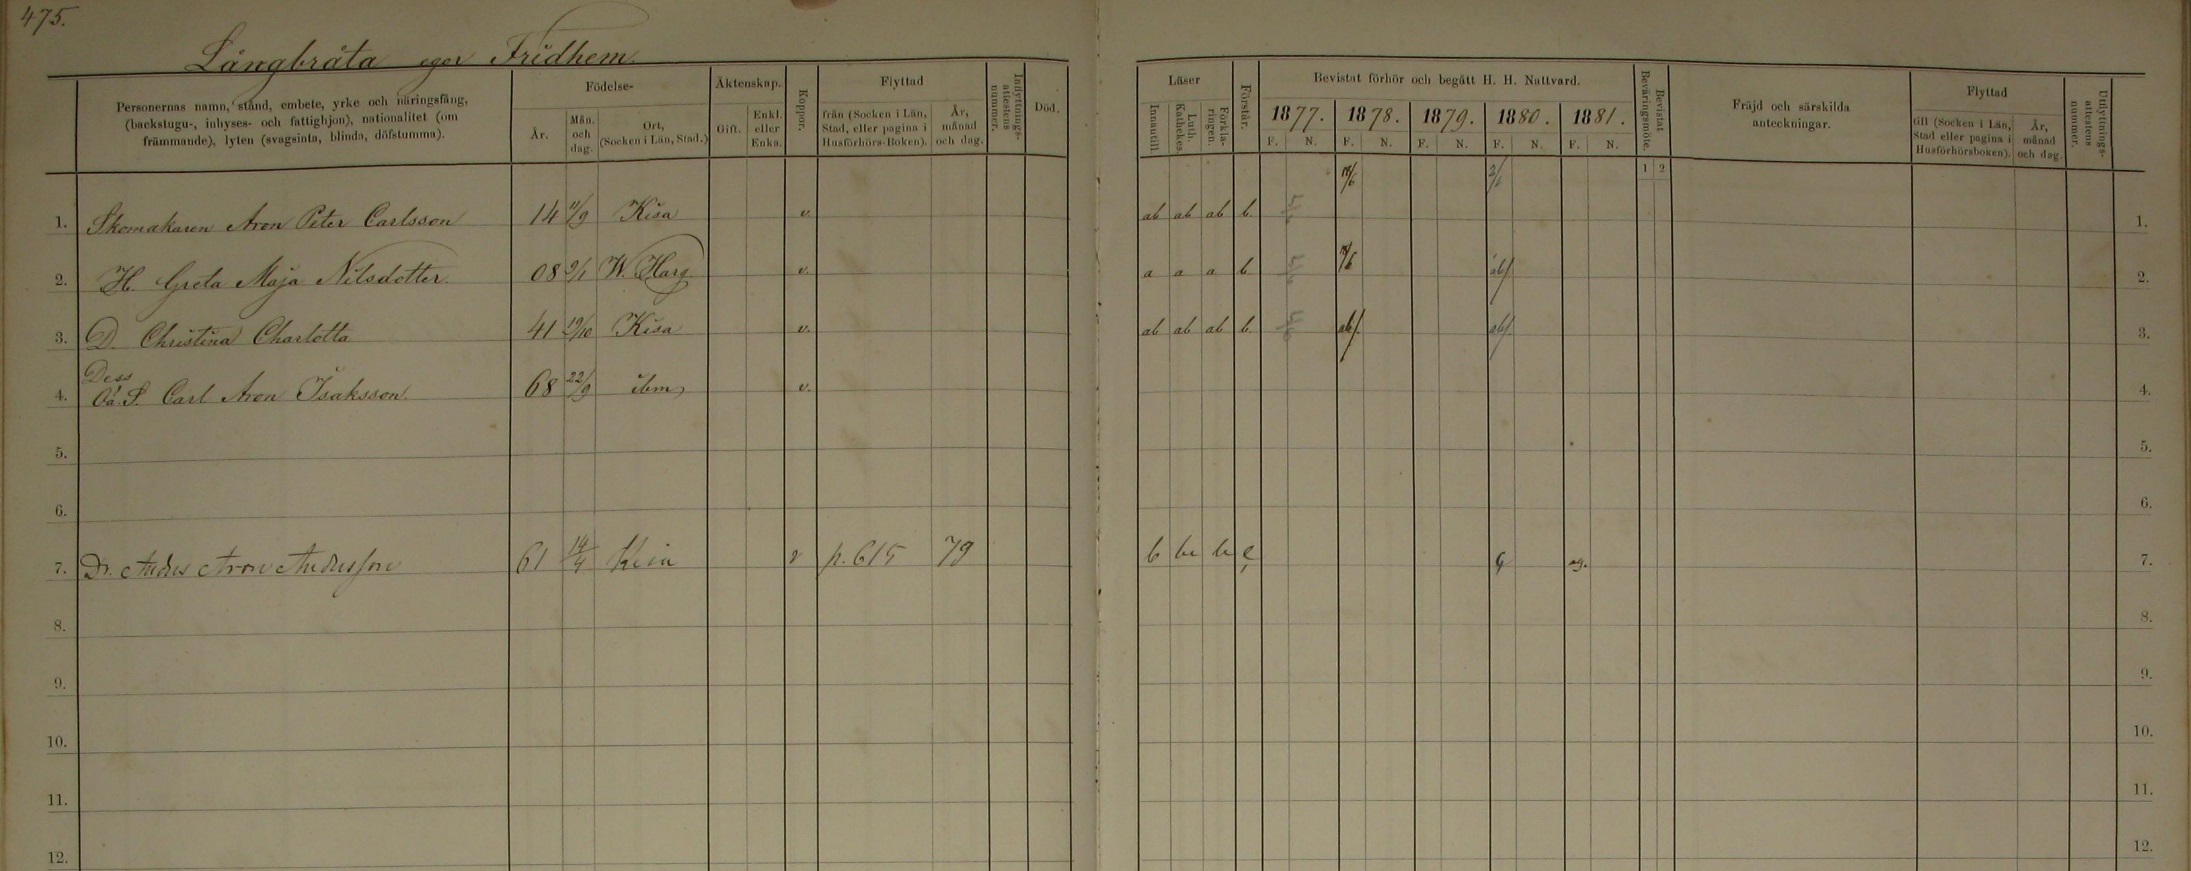 475.
Långbråta eger Fridhem.
Personernas namn, stånd, embete, yrke och näringsfång, (backstugu-, inhyses- och fattighjon), nationalitet (om främmande), lyten (svagsinta, blinda, döfstumma).
Födelse-
År.
Mån. och dag.
Ort, (Socken i Län, Stad.)
Äktenskap.
Gift.
Enkl. eller Enka.
Koppor.
Flyttad
från (Socken i Län, Stad, eller pagina i Husförhörs-Boken).
År, månad och dag.
Inflyttnings-attestens nummer.
Död.
Läser
Innantill.
Luth. Kathekes.
Förklaringen.
Förstår.
Bevistat förhör och begått H. H. Nattvard.
1877. 1878. 1879. 1880. 1881.
F. N. F. N. F. N. F. N. F. N.
Bevistat Beväringsmöte.
1 2
Fräjd och särskilda anteckningar.
Flyttad
till (Socken i Län, Stad eller pagina i Husförhörsboken).
År, månad och dag.
Utflyttnings-attestens nummer.
2/6
1. Skomakaren Aron Peter Carlsson 14 11/9 Kisa v. ab ab ab b. 1.
2. H. Greta Maja Nilsdotter. 08 9/1 W. Harg v. a a a b. ab/ 2.
3. D. Christina Charlotta 41 19/10 Kisa v. ab ab ab b. ab/. ab/ 3.
Dess
4. Oä. S. Carl Aron Isaksson. 68 22/9 ibm v. 4.
5. 5.
6. 6.
7. Dr. Anders Aron Andersson 61 14/4 Kisa v p. 615 79 b ag. 7.
8. 8.
9. 9.
10. 10.
11. 11.
12. 12.